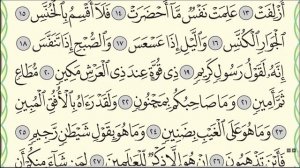 أُزْلِفَتْ ١٣ عَلِمَتْ نَفْسٌ مَّا أَحْضَرَتْ ١٤ فَلَا أُقْسِمُ بِالْخُنَّسِ ١٥
الْجَوَارِ الْكُنَّسِ ١٦ وَالَّيْلِ إِذَا عَسْعَسَ ١٧ وَالصُّبْحِ إِذَا تَنَفَّسَ ١٨
إِنَّهُ لَقَوْلُ رَسُولٍ كَرِيمٍ ١٩ ذِي قُوَّةٍ عِندَ ذِي الْعَرْشِ مَكِينٍ ٢٠ مُّطَاعٍ
ثَمَّ أَمِينٍ ٢١ وَمَا صَاحِبُكُم بِمَجْنُونٍ ٢٢ وَلَقَدْ رَءَاهُ بِالْأُفُقِ الْمُبِينِ
٢٣ وَمَا هُوَ عَلَى الْغَيْبِ بِضَنِينٍ ٢٤ وَمَا هُوَ بِقَوْلِ شَيْطَانٍ رَّجِيمٍ ٢٥
فَأَيْنَ تَذْهَبُونَ ٢٦ إِنْ هُوَ إِلَّا ذِكْرٌ لِّلْعَالَمِينَ ٢٧ لِمَن شَاءَ مِنكُمْ أَن